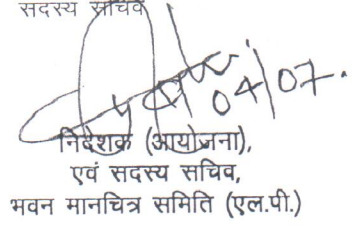 सदस्य सचिव
04/07.
निदेशक (आयोजना),
एवं सदस्य सचिव,
भवन मानचित्र समिति (एल.पी.)